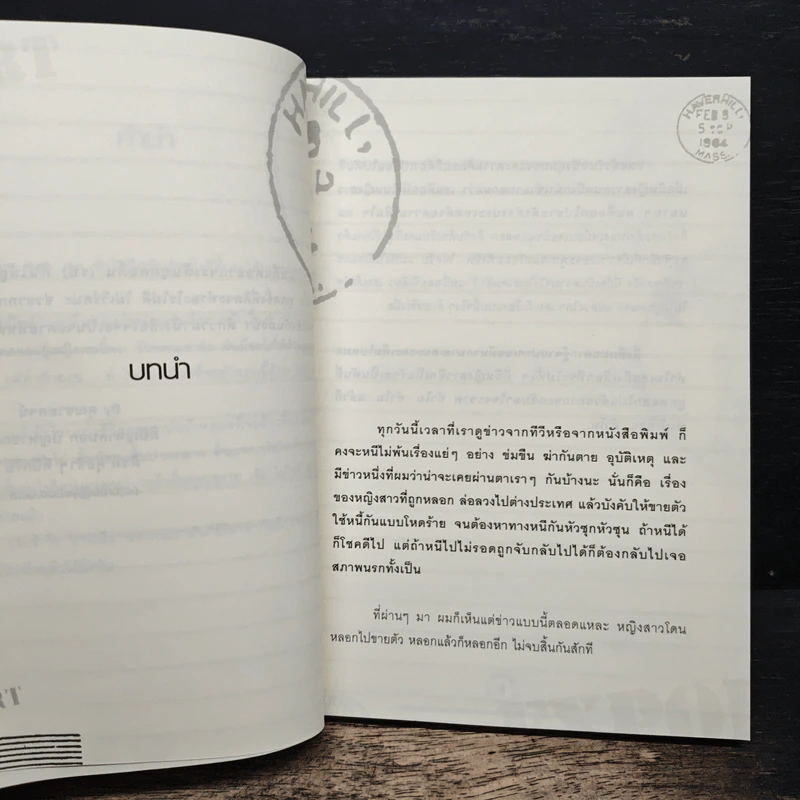 บทนำ
HAVERHILL,
FEB 8
1964
MASS.
ทุกวันนี้เวลาที่เราดูข่าวจากทีวีหรือจากหนังสือพิมพ์ ก็
คงจะหนีไม่พ้นเรื่องแย่ๆ อย่าง ข่มขืน ฆ่ากันตาย อุบัติเหตุ และ
มีข่าวหนึ่งที่ผมว่าน่าจะเคยผ่านตาเราๆ กันบ้างนะ นั่นก็คือ เรื่อง
ของหญิงสาวที่ถูกหลอก ล่อลวงไปต่างประเทศ แล้วบังคับให้ขายตัว
ใช้หนี้กันแบบโหดร้าย จนต้องหาทางหนีกันหัวซุกหัวซุน ถ้าหนีได้
ก็โชคดีไป แต่ถ้าหนีไปไม่รอดถูกจับกลับไปได้ก็ต้องกลับไปเจอ
สภาพนรกทั้งเป็น
ที่ผ่านๆ มา ผมก็เห็นแต่ข่าวแบบนี้ตลอดแหละ หญิงสาวโดน
หลอกไปขายตัว หลอกแล้วก็หลอกอีก ไม่จบสิ้นกันสักที